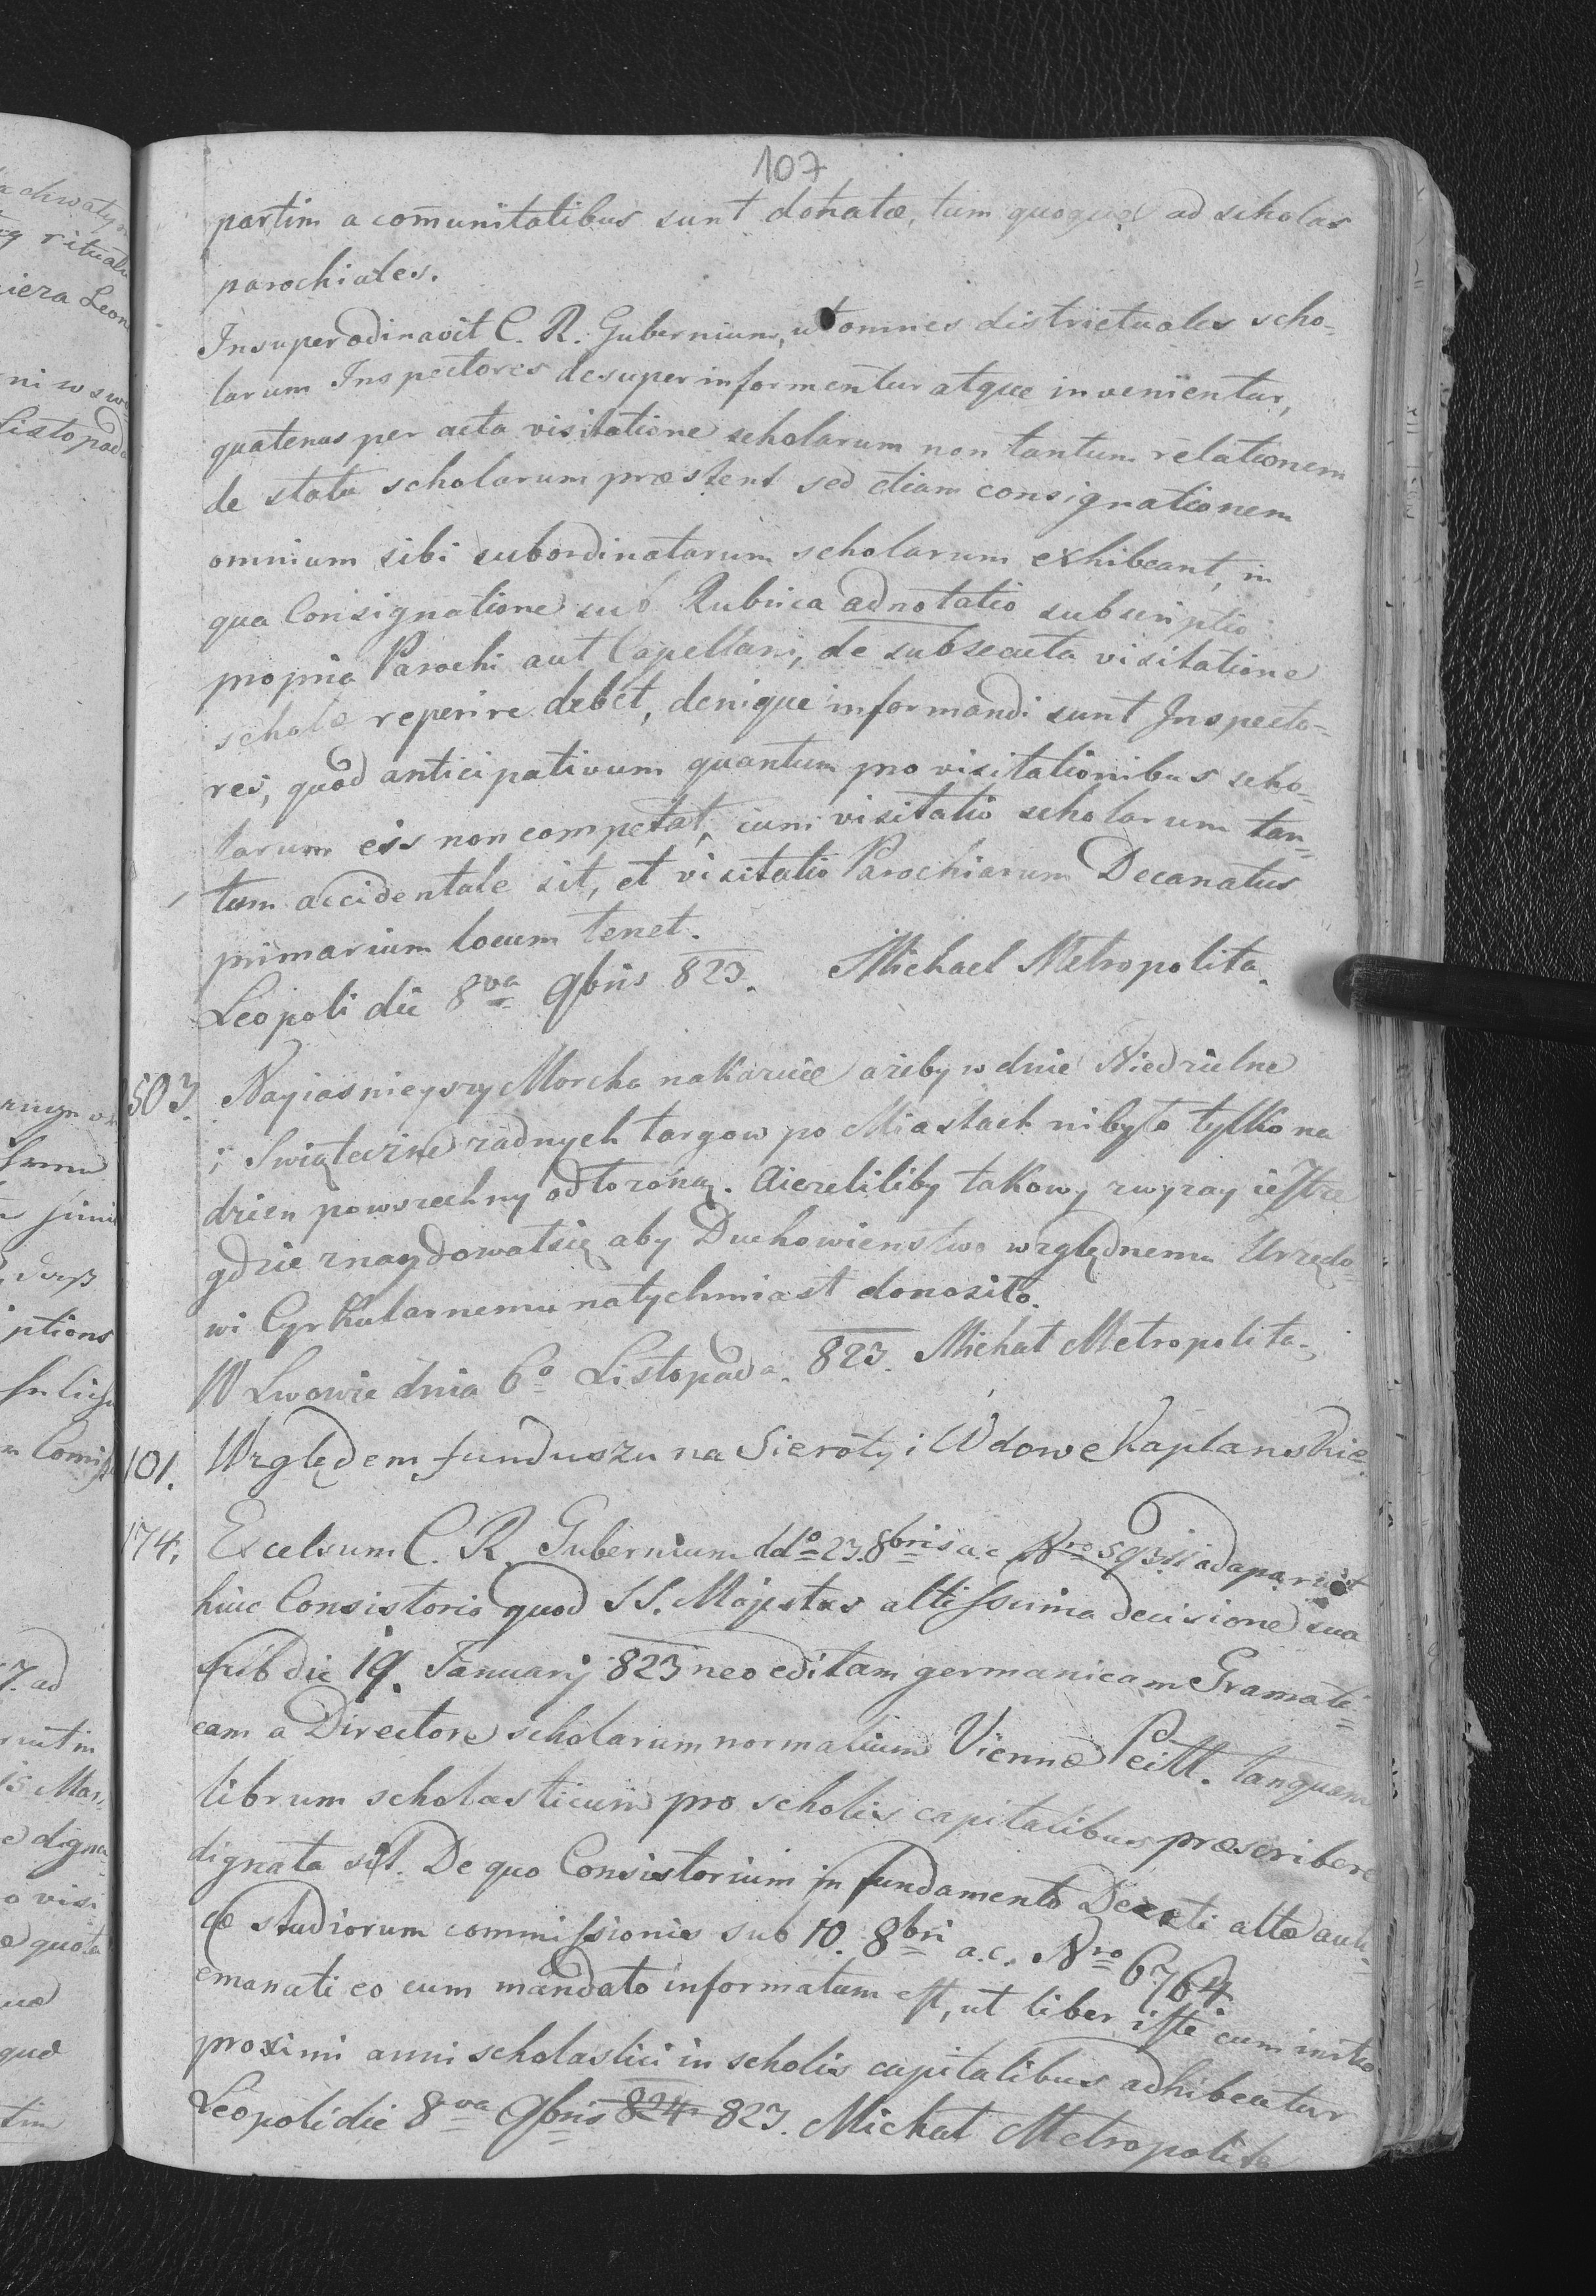 107
partim a com̄unitatibus sunt donatæ, tum quoque ad scholas
parochiales.
Insuper odinavit C. R. Gubernium, ut omnes districtuales scho-
larum Inspectores desuper informentur atque invenientur,
quatenus per acta visitatione scholarum non tantum relationem
de statu scholarum præstent sed etiam consignationem
omnium sibi subordinatarum scholarum exhibeant, in
qua Consignatione sub Rubrica adnotatio subscriptio
propria Parochi aut Capellani, de subsecuta visitatione
scholæ reperire debet, denique informandi sunt Inspecto-
res, quod anticipativum quantum pro visitationibus scho-
larum eis non competat, cum visitatio scholarum tan-
tum accidentale sit, et visitatio Parochiarum Decanatus
primarium locum tenet.
Leopoli die 8va 9bris 823. Michael Metropolita.
503. Nayiasnieyszy Morcha nakazuie azeby w dnie Niedzielne
i Swiąteczne zadnych targow po Miastach nibyło tylko na
dzien powszechny odłozoną. A iezeliliby takowy zwyzay ieszcze
gdzie znaydowałsię aby Duchowienstwo względnemu Urzędo-
wi Cyrkularnemu natychmiast donosiło.
W Lwowie dnia 6o Listopada. 823. Michał Metropolita.
101. Względem funduszu na Sieroty i Wdowe Kaplanskie
174. Excelsum C. R. Gubernium ddo 23. 8bris a.c. Nro 59311 adaparuit
huic Consistorio quod SS. Majestas altissima decisione sua
sub die 19. Januarij 823 neo editam germanicam Gramati-
cam a Directore scholarum normalium Viennæ Peitl. tanquam
librum scholasticum pro scholis capitalibus præscribere
dignata sit. De quo Consistorium in fundamento Decreti altæ auli-
cæ studiorum commissionis sub 10. 8bri a.c. Nro 6764.
emanati eo cum mandato informatum est, ut liber iste cum initio
proximi anni scholastici in scholis capitalibus adhibeatur
Leopoli die 8va 9bris 824 823. Michał Metropolita